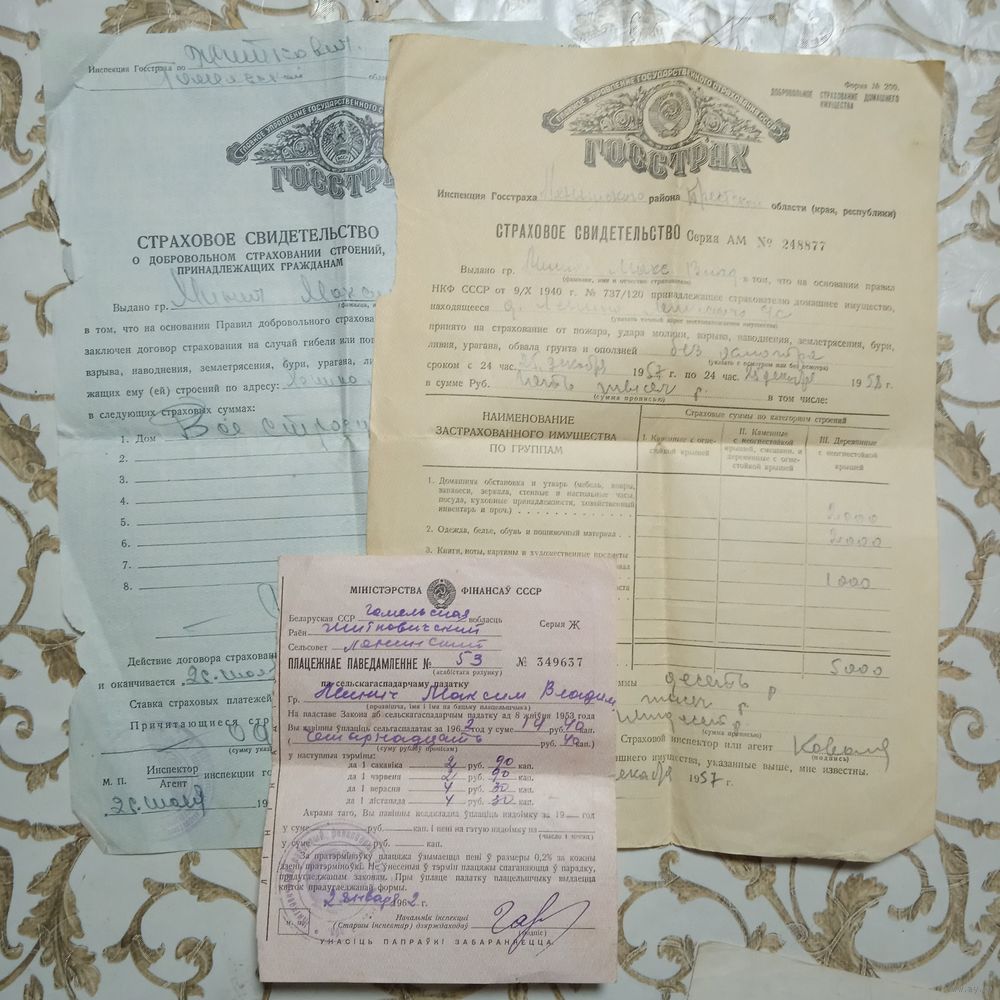 Инспекция Госстраха по Житкович.
ГЛАВНОЕ УПРАВЛЕНИЕ ГОСУДАРСТВЕННОГО
ГОССТРА
СТРАХОВОЕ СВИДЕТЕЛЬСТВО
О ДОБРОВОЛЬНОМ СТРАХОВАНИИ СТРОЕНИЙ,
ПРИНАДЛЕЖАЩИХ ГРАЖДАНАМ
Выдано гр.
в том, что на основании Правил добровольного страхова
заключен договор страхования на случай гибели или по
взрыва, наводнения, землетрясения, бури, урагана, ли
жащих ему (ей) строений по адресу:
в следующих страховых суммах:
1. Дом Все строен
2.
3.
4.
5.
6.
7.
8.
Действие договора страхован
и оканчивается
Ставка страховых платежей
Причитающиеся стр
(сумму
Инспектор
Агент
инспекции го
М. П.
19
Форма № 200.
ДОБРОВОЛЬНОЕ СТРАХОВАНИЕ ДОМАШНЕГО
ИМУЩЕСТВА
ГЛАВНОЕ УПРАВЛЕНИЕ ГОСУДАРСТВЕННОГО СТРАХОВАНИЯ СССР
ГОССТРАХ
Инспекция Госстраха Ленинского района Брестской области (края, республики)
СТРАХОВОЕ СВИДЕТЕЛЬСТВО Серия АМ № 248877
Выдано гр. в том, что на основании правил
(фамилия, имя и отчество страхователя)
НКФ СССР от 9/X 1940 г. № 737/120 принадлежащее страхователю домашнее имущество,
находящееся д. Ленино
(указать точный адрес местонахождения имущества)
принято на страхование от пожара, удара молнии, взрыва, наводнения, землетрясения, бури,
ливня, урагана, обвала грунта и оползней без осмотра
(указать с осмотром или без осмотра)
сроком с 24 час. 25 декабря 1957 г. по 24 час. 25 декабря 1958 г.
в сумме Руб. пять тысяч р. в том числе:
(сумма прописью)
НАИМЕНОВАНИЕ
ЗАСТРАХОВАННОГО ИМУЩЕСТВА
ПО ГРУППАМ
Страховые суммы по категориям строений
I. Каменные с огне-
стойкой крышей
II. Каменные
с неогнестойкой
крышей, смешанн. и
деревянные с огне-
стойкой крышей
III. Деревянные
с неогнестойкой
крышей
1. Домашняя обстановка и утварь (мебель, ковры,
занавеси, зеркала, стенные и настольные часы,
посуда, кухонные принадлежности, хозяйственный
инвентарь и проч.) 2000
2. Одежда, белье, обувь и пошивочный материал 2000
3. Книги, ноты, картины и художественные предметы
1000
5000
десять р.
(сумма прописью)
Страховой инспектор или агент
(подпись)
ашнего имущества, указанные выше, мне известны.
екабря 1957 г.
МІНІСТЭРСТВА ФІНАНСАЎ СССР
Беларуская ССР Гомельская вобласць
Серыя Ж
Раён Житковичский
Сельсовет Ленинский
ПЛАЦЕЖНАЕ ПАВЕДАМЛЕННЕ № 53 № 349637
(асабістага рахунку)
па сельскагаспадарчаму падатку
Гр. Максим Владим
(прозвішча, імя і імя па бацьку плацельшчыка)
На падставе Закона аб сельскагаспадарчым падатку ад 8 жніўня 1953 года
Вы павінны ўплаціць сельгаспадатак за 1962 год у суме 14 руб. 40 кап.
(четырнадцать руб. 40 кап.
(суму рублёў прапісам)
у наступныя тэрміны:
да 1 сакавіка 2 руб. 90 кап.
да 1 чэрвеня 2 руб. 90 кап.
да 1 верасня 4 руб. 30 кап.
да 1 лістапада 4 руб. 30 кап.
Акрамя таго, Вы павінны неадкладна ўплаціць нядоімку за 19 год
у суме руб. кап. і пені на гэтую нядоімку на
(число і месяц)
у суме руб. кап.
За пратэрміноўку плацяжа ўзымаецца пені ў размеры 0,2% за кожны
дзень пратэрміноўкі. Не ўнесеныя ў тэрмін плацяжы спаганяюцца ў парадку,
прадугледжаным законам. Пры ўплаце падатку плацельшчыку выдаецца
квіток прадугледжанай формы.
2 января 1962 г.
Начальнік інспекцыі
(Старшы інспектар) дзярждаходаў
(подпіс)
УНАСІЦЬ ПАПРАЎКІ ЗАБАРАНЯЕЦЦА